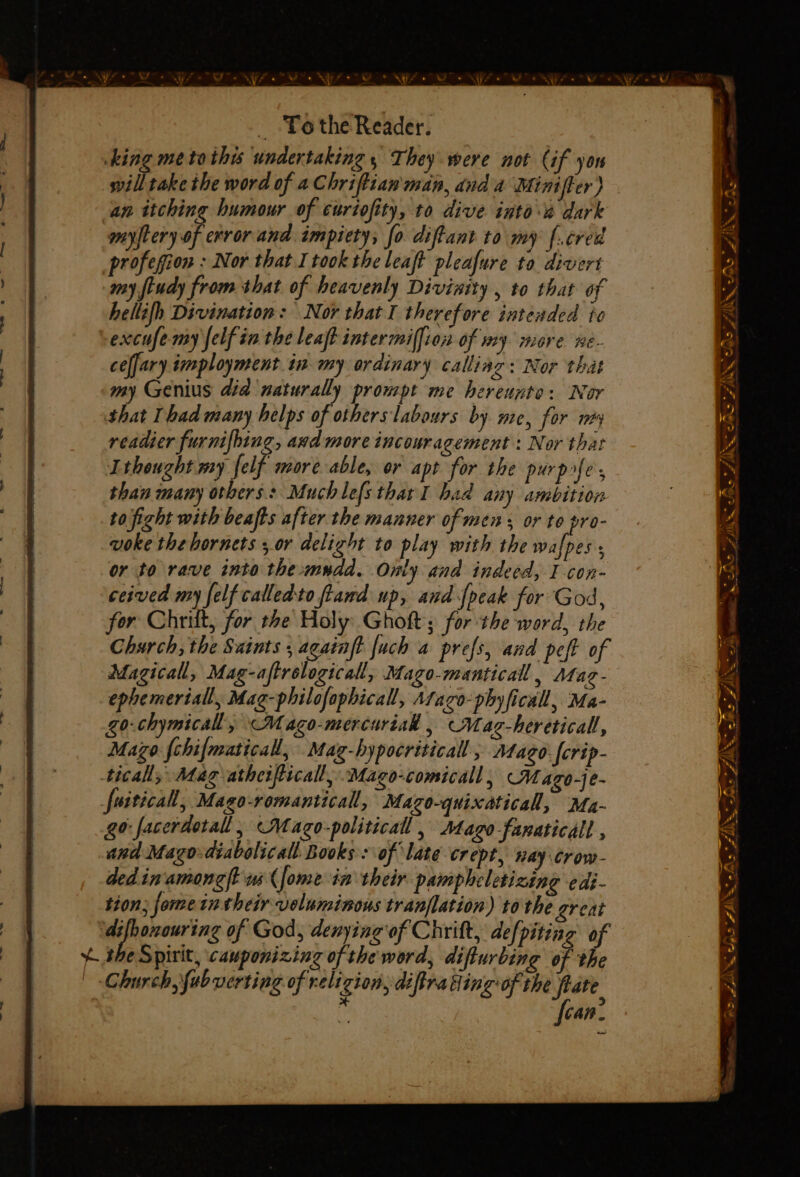 To the Reader.
king me to this undertaking; They were not (if you
will take the word of a Chriſtian man, and a Miniſter)
an itching humour of curioſity, to dive into a dark
myſtery of error and impiety, ſo diſtant to my ſacred
profeſſion: Nor that I took the leaſt pleaſure to divert
my ſtudy from that of heavenly Divinity, to that of
helliſh Divination: Nor that I therefore intended to
excuſe my ſelf in the leaſt intermiſſion of my more ne-
ceſſary imployment in my ordinary calling: Nor that
my Genius did naturally prompt me hereunto: Nor
that I had many helps of others labours by me, for my
readier furniſhing, and more incouragement: Nor that
I thought my ſelf more able, or apt for the purpoſe,
than many others: Much leſs that I had any ambition
to fight with beaſts after the manner of men; or to pro-
voke the hornets; or delight to play with the waſpes;
or to rave into the mudd. Only and indeed, I con-
ceived my ſelf called to ſtand up, and ſpeak for God,
for Chriſt, for the Holy Ghoſt; for the word, the
Church, the Saints; againſt ſuch a preſs, and peſt of
Magicall, Mag-aſtrologicall, Mago-manticall, Mag-
ephemeriall, Mag-philoſophicall, Mago-phyſicall, Ma-
go-chymicall, Mago-mercuriall, Mag-hereticall,
Mago ſchiſmaticall, Mag-hypocriticall, Mago-ſcrip-
ticall, Mag atheiſticall, Mago-comicall, Mago-je-
ſuiticall, Mago-romanticall, Mago-quixaticall, Ma-
go-ſacerdotall, Mago-politicall, Mago-fanaticall,
and Mago-diabolicall Books: of late crept, nay crow-
ded in amongſt us (ſome in their pamphcletizing edi-
tion; ſome in their voluminous tranſlation) to the great
diſhonouring of God, denying of Chriſt, deſpiting of
the Spirit, cauponizing of the word, diſturbing of the
Church, ſubverting of religion, diſtracting of the ſtate
ſcan-